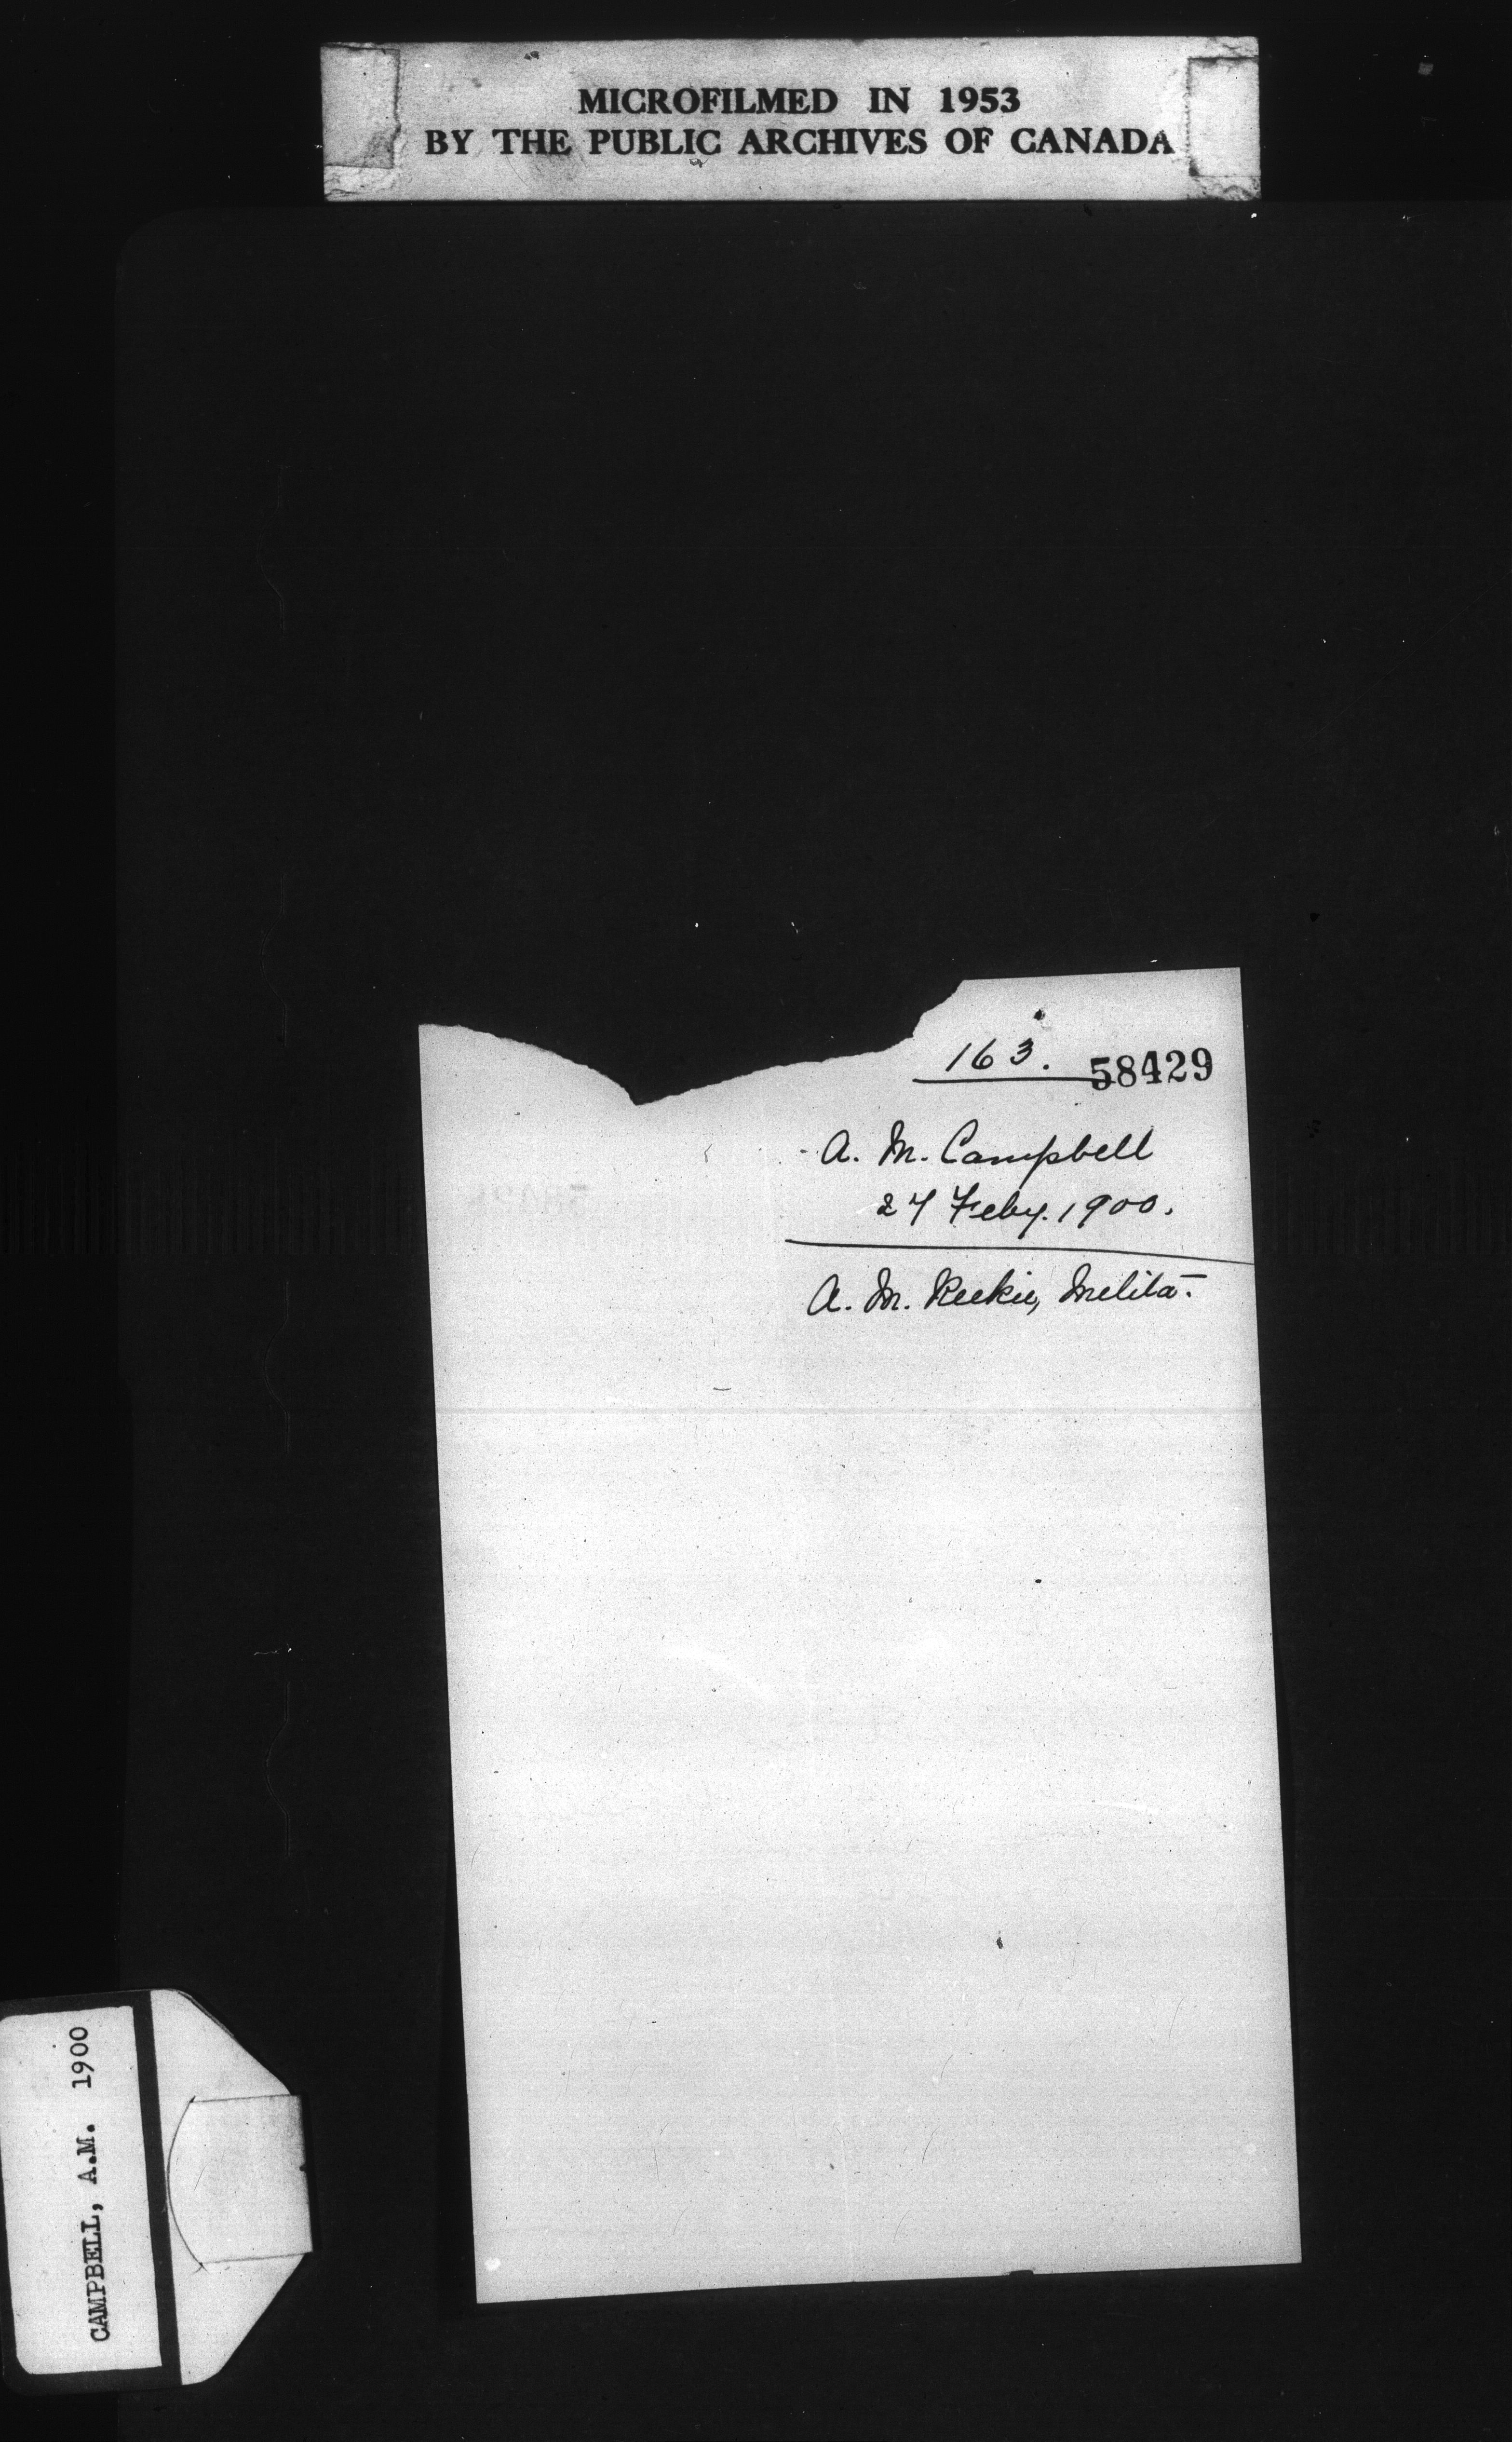 MICROFILMED IN 1953
BY THE PUBLIC ARCHIVES OF CANADA
163. 58429
A. M. Campbell
27 Feby. 1900.
A. M. Reekie, Melita.
CAMPBELL, A.M. 1900